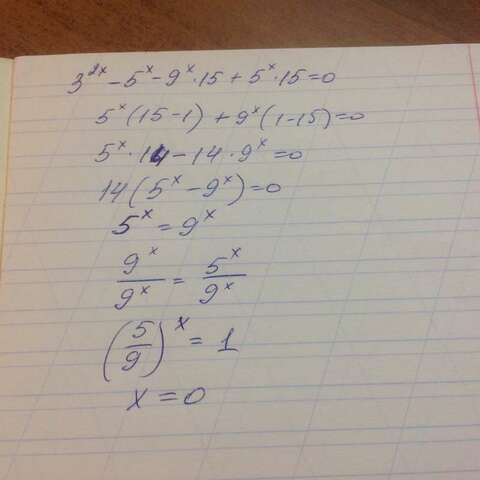 3^{2x} - 5^x - 9^x · 15 + 5^x · 15 = 0
5^x (15 - 1) + 9^x (1 - 15) = 0
5^x · 14 - 14 · 9^x = 0
14 (5^x - 9^x) = 0
5^x = 9^x
9^x/9^x = 5^x/9^x
(5/9)^x = 1
x = 0